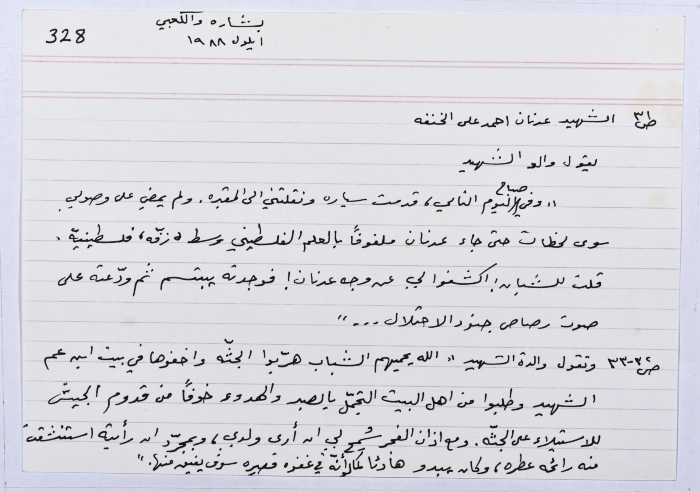 بشاره والكعبي
ايلول ١٩٨٨
328
ص٣١ الشهيد عدنان احمد علي الخنفه
يقول والد الشهيد
" وفي صباح اليوم التالي، قدمت سياره ونقلتني الى المقبره. ولم يمض على وصولي
سوى لحظات حتى جاء عدنان ملفوفاً بالعلم الفلسطيني وسط " زفّه " فلسطينيّة.
قلت للشبان! اكشفوا لي عن وجه عدنان! فوجدته يبتسم ثم ودّعته على
صوت رصاص جنود الاحتلال ... "
ص٣٢-٣٣ وتقول والدة الشهيد " الله يحميهم الشباب هرّبوا الجثّه واخفوها في بيت ابن عم
الشهيد وطلبوا من اهل البيت التجمّل بالصبر والهدوء خوفاً من قدوم الجيش
للاستيلاء على الجثّه. ومع اذان الفجر سُمح لي ان أرى ولدي، وبمجرّد ان رأيته استنشقت
منه رائحه عطره، وكان يبدو هادئا كما لو أنّه في غفوه قصيره سوف يفيق منها. "